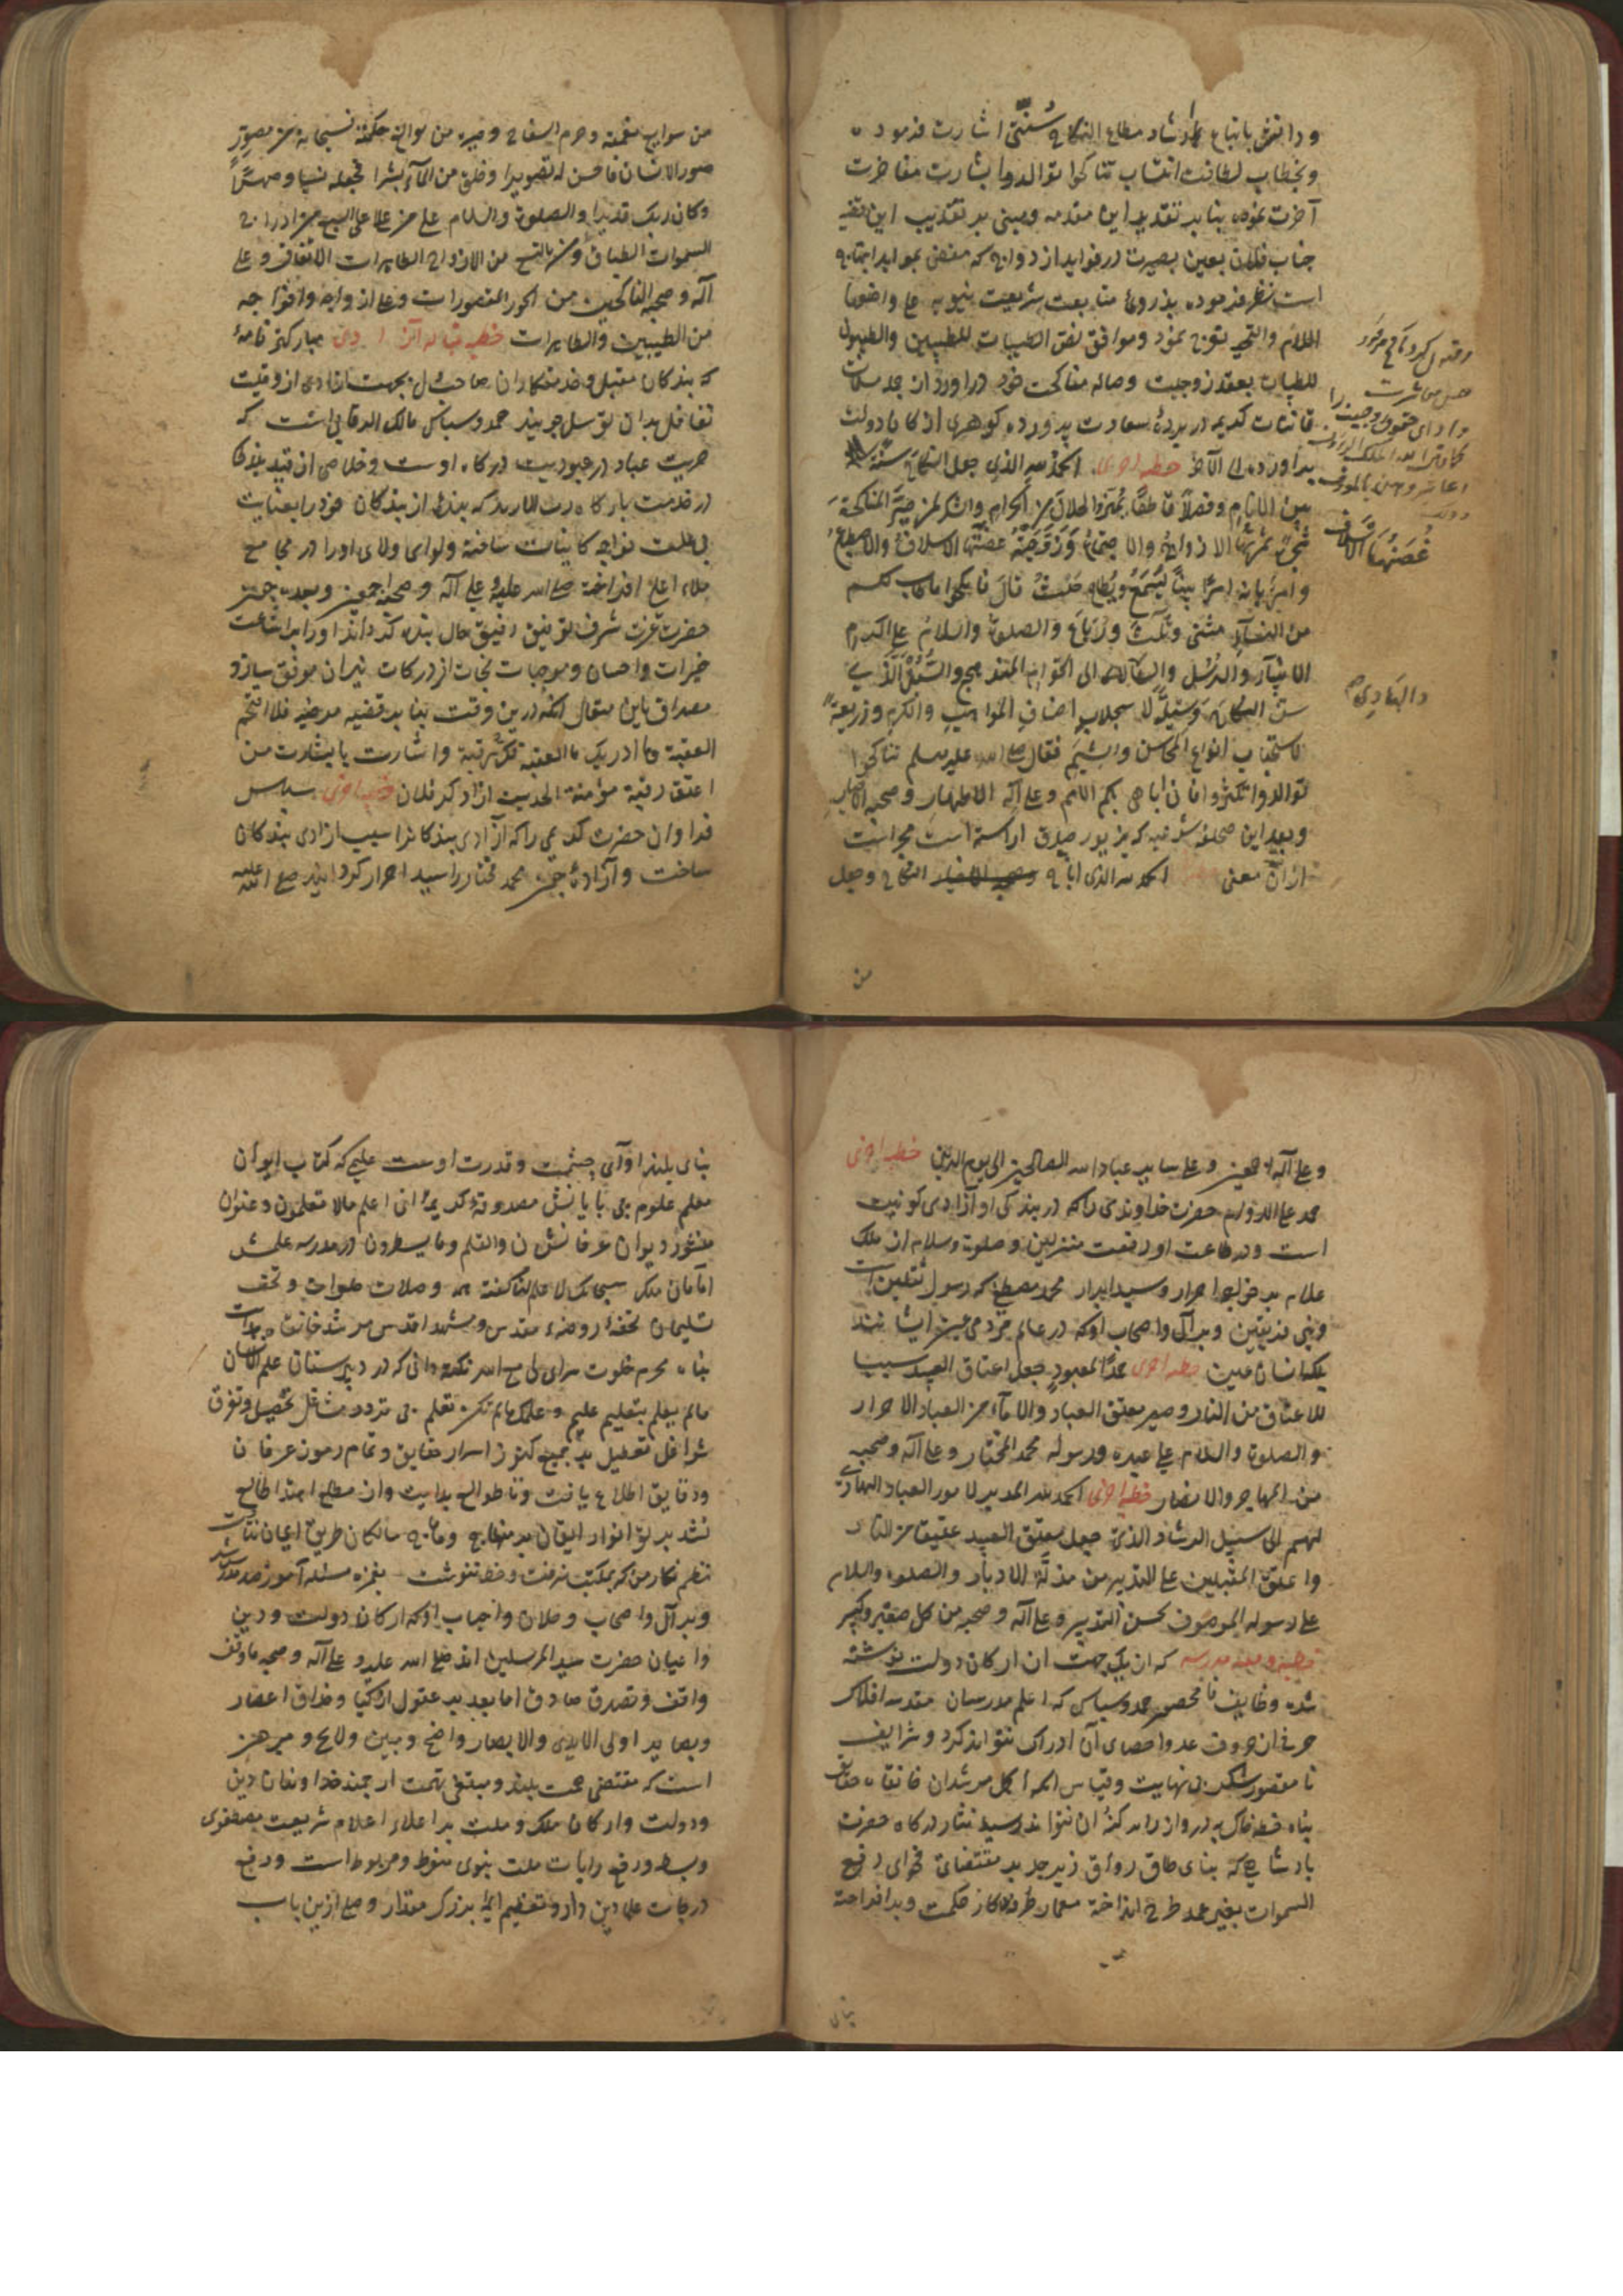 ودانش باتباع ارشاد مطاع النکاح سُنّتی اشارت فرموده
وبخطاب لطافت انتساب تناکحوا توالدوا بشارت مفاخرت
آخرت نموده بنا بر تقدیر این مقدمه ومبنی بر تقریب این
جناب فلان بعین بصیرت در فواید ازدواج که مفضی بعواید ابتهاج
است نظر فرموده بر متابعت شریعت نبویه علی واضعها
السلام والتحیه تزوج نمود وموافق نص الطیبات للطیبین والطیبون
للطیبات بعقد زوجیت وصاله مناکحت خود دراورد از
قانتات کریمه در پردهٔ سعادت پرورده گوهری از کان دولت
براورده الی الآخر خطبه اخری الحمد لله الذی جعل النکاح سنة
بین الانام وفصلا قاطعا ممیزا لحلال من الحرام والشکر لمن صیر المناکحة
الازواج
وامر بانه امرا بینا لیسمع ویطاع حیث قال فانکحوا ما طاب لکم
من النساء مثنی وثلث ورباع والصلوة والسلام علی اکرم
الانبیاء والرسل الی اقوام المناهج والسبل الذی
سن النکاح وسیلة لاستجلاب اصناف المواهب والکرم وذریعة
لاستجذاب انواع المحاسن والشیم فقال صلی الله علیه وسلم تناکحوا
توالدوا تکثروا فانی اباهی بکم الامم وعلی آله الاطهار وصحبه الاخیار
وبعد این صحیفه شرفیه که بزیور صدق اراسته است مجر است
از آن معنی الحمد لله الذی اباح النکاح وجعل
والهادی
من سوابغ نعمه وحرم السفاح وصیره من سوابغ حکمة فسبحانه من مصور
صور الانسان فاحسن له تصویرا وخلق من الماء بشرا فجعله نسبا وصهرا
وکان ربک قدیرا والصلوة والسلام علی من علا علی السبع من ادراج
السموات الطباق من الازواج الطاهرات الآفاق وعلی
آله وصحبه الناکحین من الحور المقصورات وعلی ازواجه وافواجه
من الطیبین والطاهرات خطبه قباله آزادی مبارکتر نامهٔ
که بندکان مقبل وخدمتکاران صاحب دل بجهت ازادی از وقیت
تغافل بدان توسل جویند حمد وسپاس مالک الرقابی است که
حریت عباد در عبودیت درکاه اوست وخلاص از قید بلاها
در خدمت بارگاه رب الاربابی که بندهٔ از بندکان خود را بعنایت
بی علت خواجه کاینات ساخته ولوای ولای اورا در مجامع
ملاء اعلی افراخته صلی الله علیه وعلی آله وصحبه اجمعین وبعد چون
حضرت عزت شرف توفیق رفیق حال بنده کرداند اورا براشاعت
خیرات واحسان وموجبات نجات از درکات نیران موفق سازد
مصداق این مقال آنکه درین وقت بنا بر قضیه مرضیه فلا اقتحم
العقبة وما ادریک ما العقبة فک رقبة واشارت با بشارت من
اعتق رقبة مؤمنة الحدیث ازاد کرد فلان خطبه اخری سپاس
فراوان حضرت کریمی را که آزادی بندکانرا سبب ازادی بندکان
ساخت وآزاده چون محمد مختار را سید احرار کردانید صلی الله علیه
وعلی آله اجمعین وعلی سایر عباد الله الصالحین الی یوم الدین خطبه اخری
حمد علی الدوام حضرت خداوندی راکه در بندکی او آزادی کونین
است ودر طاعت او رفعت منزلین وصلوة وسلام از ملک
علام بر خواجه احرار وسید ابرار محمد مصطفی که رسول ثقلین است
ونبی فریقین وبر آل واصحاب اوکه در عالم مردمی عین ایشانند
یک انسان عین خطبه اخری حمدا لمعبود جعل اعتاق العبید سببا
للاعتاق من النار وصیر معتق العباد والاماء من العباد الاحرار
والصلوة والسلام علی عبده ورسوله محمد المختار وعلی آله وصحبه
من المهاجر والانصار خطبه اخری الحمد لله المدبر لامور العباد الهادی
لهم الی سبیل الرشاد الذی جعل معتق العبید عتیقا من النار
واعتق المقبلین علی التدبیر من مذلة الادبار والصلوة والسلام
علی رسوله الموصوف بحسن التدبیر وعلی آله وصحبه من کل صغیر وکبیر
خطبه وقفیه مدرسه که از یک جهت ان ارکان دولت نوشته
شده وظایف نامحصور حمد وسپاس که اعلم مدرسان مقدسه افلاک
حرفی از حروف عدد واحصای آن ادراک نتواند کرد وشرایف
نامقصور شکر بی نهایت وقیاس که اکمل مرشدان خانقاه حقایق
پناه خطه خاک پر درواز راه کنه ان نتواند رسید نثار درکاه حضرت
پادشاهی که بنای طاق رواق زبرجد بر مقتضای فحوای رفع
السموات بغیر عمد طرح انداخته معمار طرفه کار حکمت وبرافراخته
بنای بلند اوآی حشمت وقدرت اوست علیمی که کتاب ایوان
معلم علوم بی پایانش مصدوقهٔ کریمهٔ انی اعلم مالا تعلمون وعنوان
منشور دیوان عرفانش ن والقلم وما یسطرون در مدرسه علمش
امامان ملک سبحانک لا علم لنا گفته همه وصلات صلوات وتحف
تسلیمات تحفهٔ روضهٔ مقدس ومشهد اقدس مرشد خانقاه هدایت
پناه محرم خلوت سرای لی مع الله نکته دانی که در دبیرستان علم الانسان
مالم یعلم بتعلیم علیم وعلمک مالم تکن تعلم بی تردد مشاغل تحصیل وتفرق
شواغل تعطیل بر جمیع کنوز اسرار حقایق وتمام رموز عرفان
ودقایق اطلاع یافت وتا طوالع هدایت وان مطلع اهتدا طالع
نشد پرتو انوار ایقان بر منهاج ومناهج سالکان طریق ایمان نتافت
نظم نکار من که بمکتب نرفت وخط ننوشت بغمزه مسئله آموز صد مدرس شد
وبر آل واصحاب وخلان واحباب اوکه ارکان دولت ودین
واعیان حضرت سید المرسلین اند صلی الله علیه وعلی آله وصحبه ما وقف
واقف وتصدق صادق اما بعد بر عقول ازکیا وحذاق اعصار
وبصایر اولی الایدی والابصار واضح ومبین ولایح ومبرهن
است که مقتضی همت بلند ومبتغی نهمت ارجمند خداوندان دین
ودولت وارکان ملک وملت بر اعلاء اعلام شریعت مصطفوی
وبسط ورفع رایات ملت نبوی منوط ومربوط است ورفع
درجات علماء دین دار وتعظیم ایمهٔ بزرک مقدار وصلح ازین باب